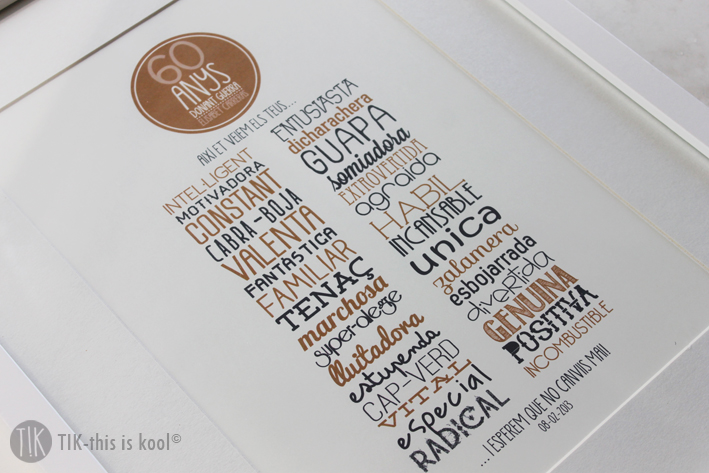 60
ANYS
DONANT GUERRA
AIXÍ ET VEIEM ELS TEUS...
INTEL·LIGENT
MOTIVADORA
CONSTANT
CABRA-BOJA
VALENTA
FANTÀSTICA
FAMILIAR
TENAÇ
marchosa
super-alegre
lluitadora
estupenda
CAP-VERD
VITAL
especial
RADICAL
ENTUSIASTA
dicharachera
GUAPA
somiadora
EXTROVERTIDA
agraïda
HÀBIL
INCANSABLE
unica
zalamera
esbojarrada
divertida
GENUINA
POSITIVA
INCOMBUSTIBLE
...I ESPEREM QUE NO CANVIIS MAI!
08-02-2013
T!K TIK-this is kool©